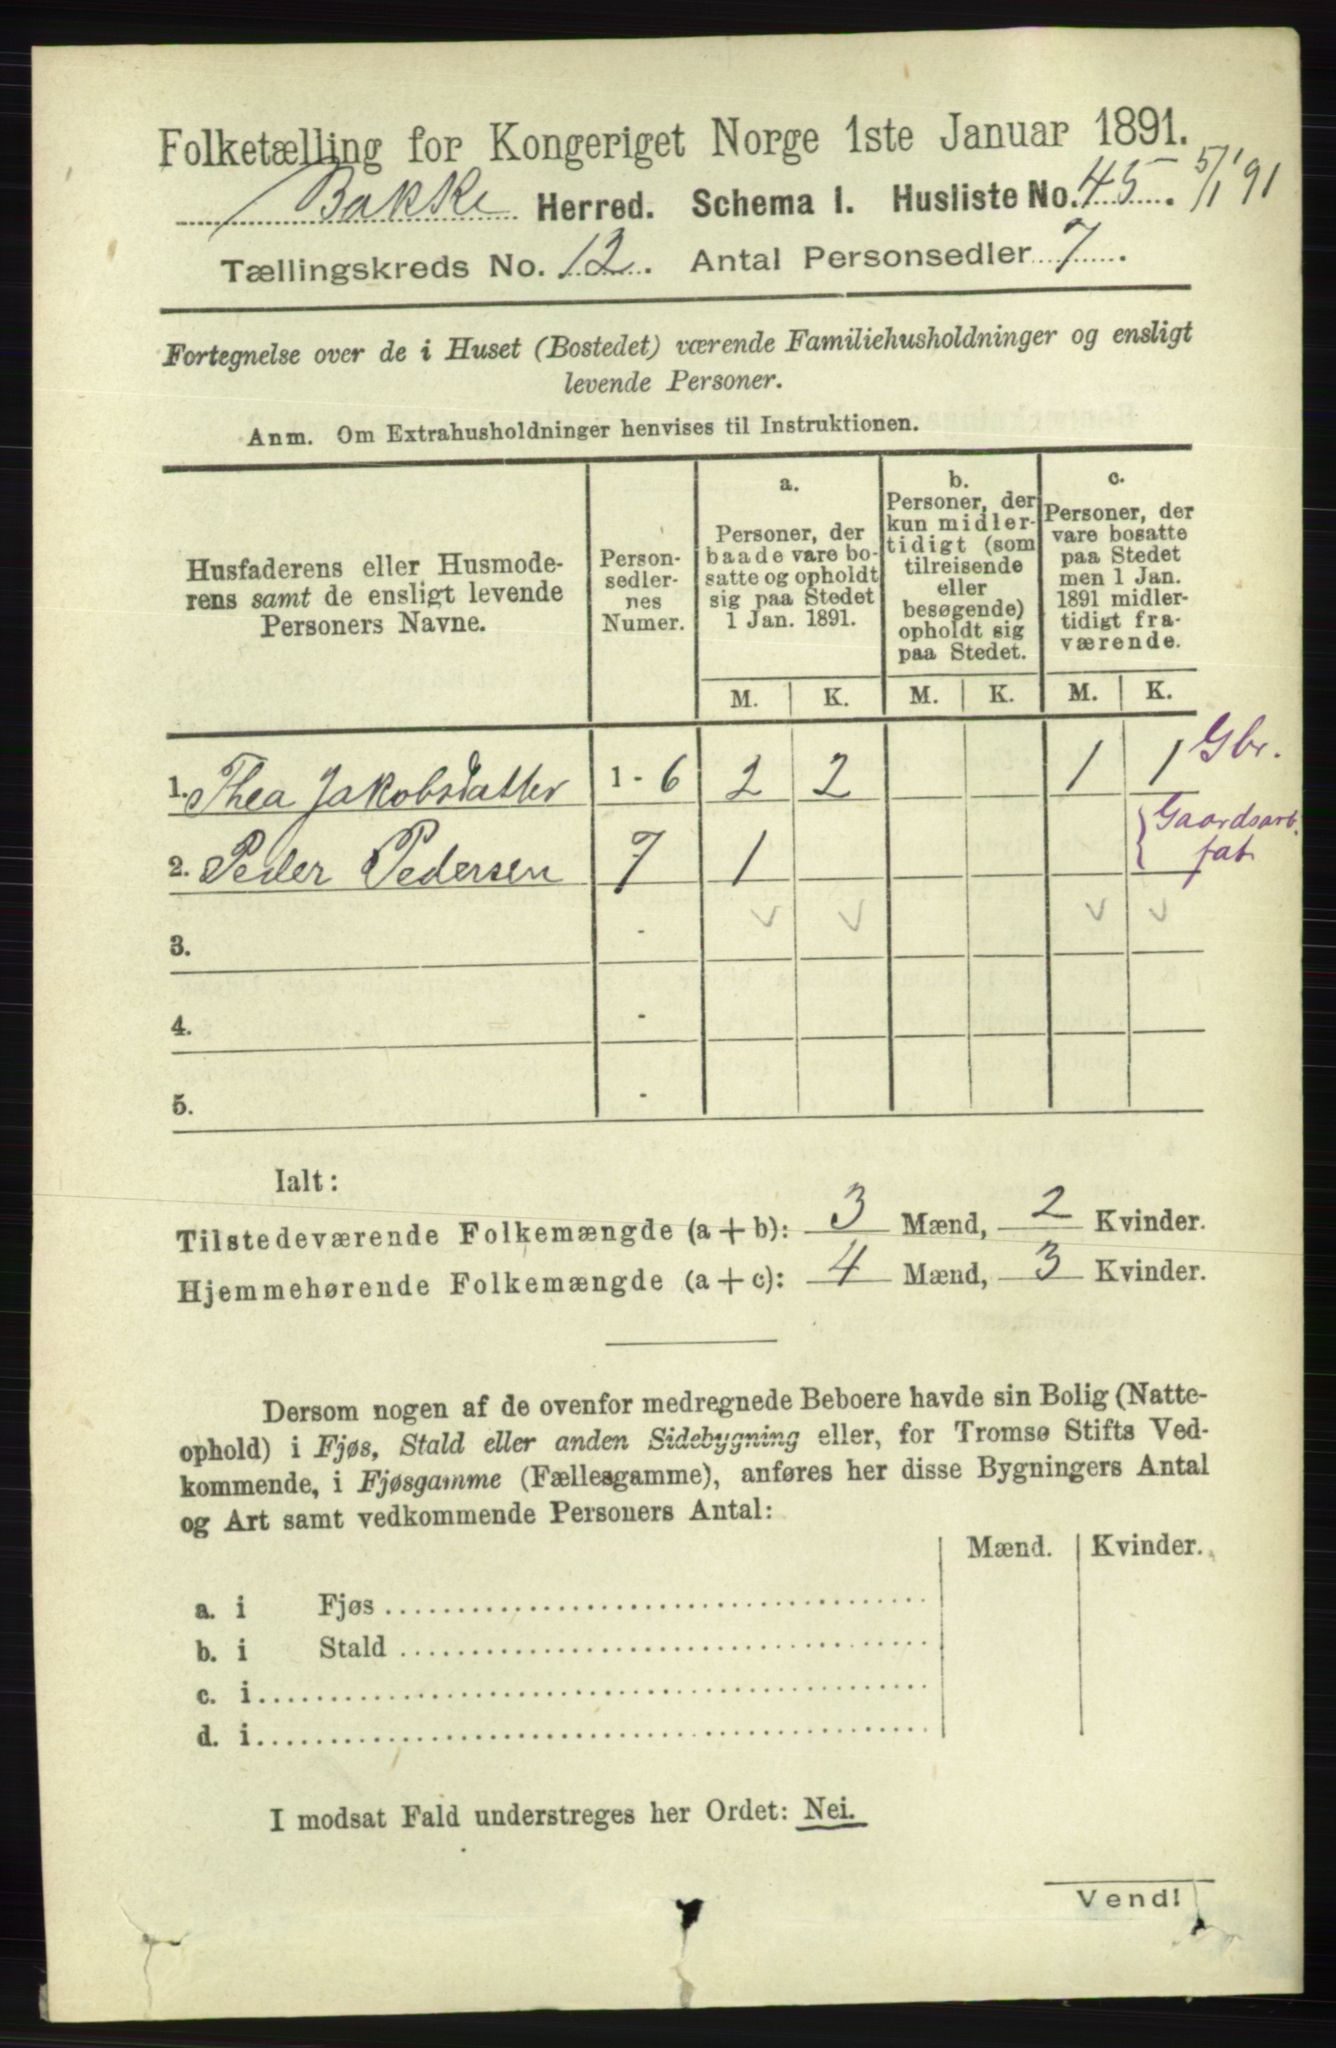 Folketælling for Kongeriget Norge 1ste Januar 1891.
Bakke Herred. Schema I. Husliste No. 45. 5/1 91
Tællingskreds No. 12. Antal Personsedler 7.
Fortegnelse over de i Huset (Bostedet) værende Familiehusholdninger og ensligt
levende Personer.
Anm. Om Extrahusholdninger henvises til Instruktionen.
Husfaderens eller Husmode-
rens samt de ensligt levende
Personers Navne.
Person-
sedler-
nes
Numer.
a.
Personer, der
baade vare bo-
satte og opholdt
sig paa Stedet
1 Jan. 1891.
b.
Personer, der
kun midler-
tidigt (som
tilreisende
eller
besøgende)
opholdt sig
paa Stedet.
c.
Personer, der
vare bosatte
paa Stedet
men 1 Jan.
1891 midler-
tidigt fra-
værende.
M. K. M. K. M. K.
1. Thea Jakobsdatter 1-6 2 2 1 1 Gbr.
2. Peder Pedersen 7 1 Gaardsarb.
fat.
3. -
4. -
5. -
Ialt:
Tilstedeværende Folkemængde (a+b): 3 Mænd, 2 Kvinder.
Hjemmehørende Folkemængde (a+c): 4 Mænd, 3 Kvinder.
Dersom nogen af de ovenfor medregnede Beboere havde sin Bolig (Natte-
ophold) i Fjøs, Stald eller anden Sidebygning eller, for Tromsø Stifts Ved-
kommende, i Fjøsgamme (Fællesgamme), anføres her disse Bygningers Antal
og Art samt vedkommende Personers Antal:
Mænd. Kvinder.
a. i Fjøs
b. i Stald
c. i
d. i
I modsat Fald understreges her Ordet: Nei.
Vend!